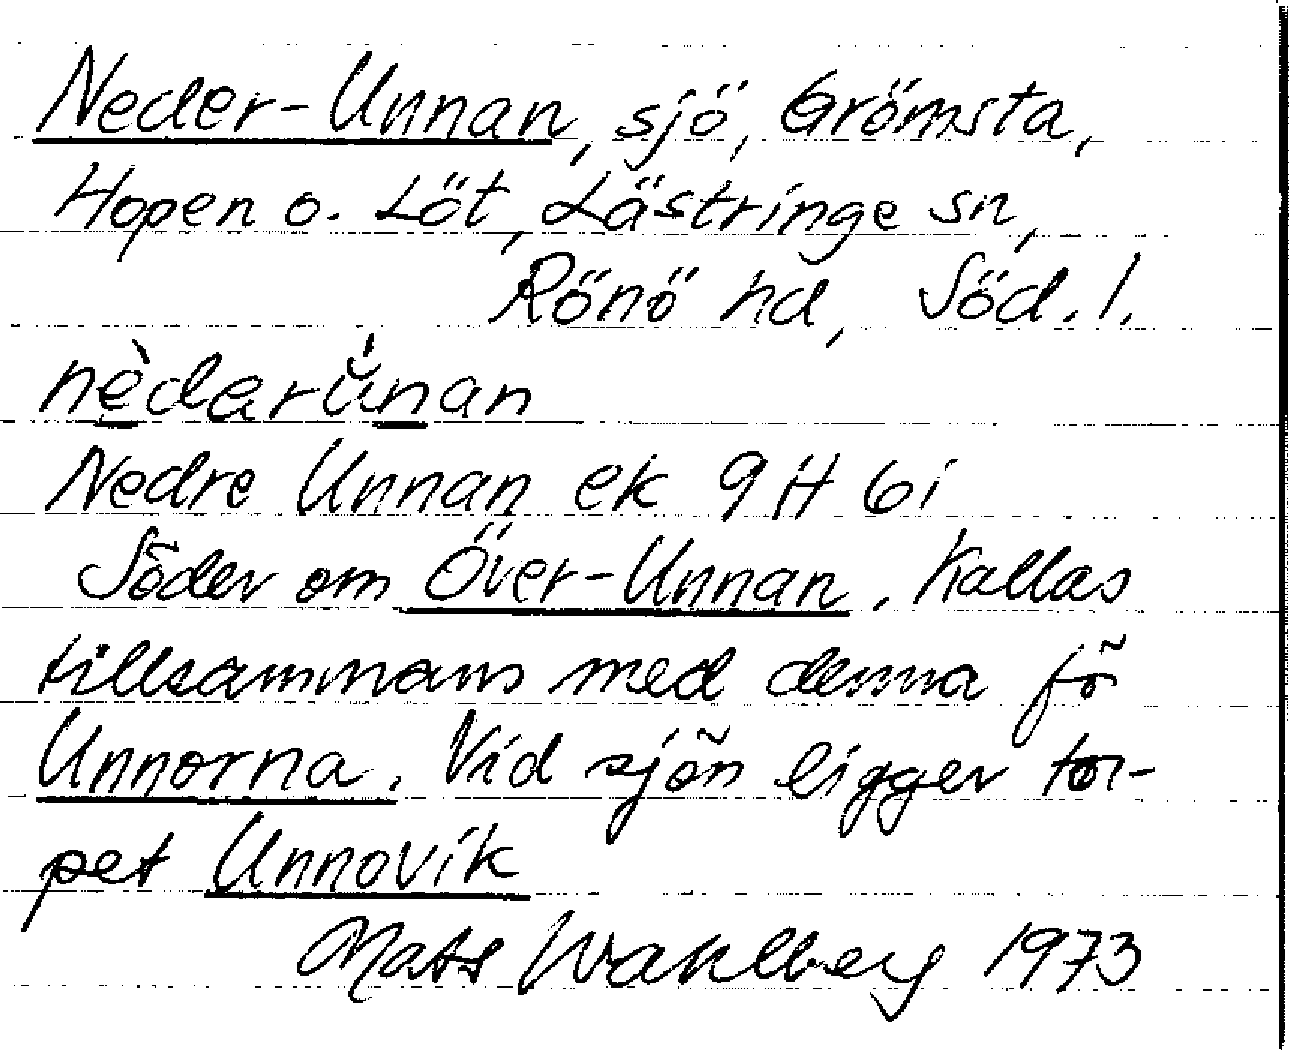 Neder-Unnan, sjö, Grömsta,
Hopen o. Löt, Lästringe sn,
Rönö hd, Söd. l.
nèdarŭ̍nan
Nedre Unnan ek 9H 6i
Söder om Över-Unnan. Kallas
tillsammans med denna fö
Unnorna. Vid sjön ligger tor-
pet Unnovik
Mats Wahlberg 1973